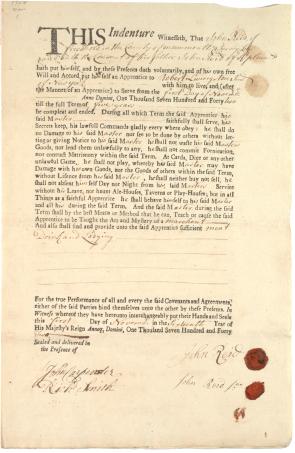 THIS Indenture Witnesseth, That John Reid of
freehold in the County of monmouth
hath put himself, and by these Presents doth voluntarily, and of his own free
Will and Accord put himself an Apprentice to Robert
with him to live, and (after
the Manner of an Apprentice) to Serve from the first Day of Novem
Anno Domini, One Thousand Seven Hundred and Forty two
till the full Term of five years
be compleat and ended. During all which Term the said Apprentice
his said Master faithfully shall serve, his
Secrets keep, his lawfull Commands gladly every where obey: he shall do
no Damage to his said Master nor see to be done by others without let-
ting or giving Notice to his said Master he shall not waste his said Masters
Goods, nor lend them unlawfully to any, he shall not commit Fornication,
nor contract Matrimony within the said Term. At Cards, Dice or any other
unlawful Game, he shall not play, whereby his said Master may have
Damage with his own Goods, nor the Goods of others within the said Term,
without Lisence from his said Master, he shall neither buy nor sell, he
shall not absent himself Day nor Night from his said Masters Service
without his Leave, nor haunt Ale-Houses, Taverns or Play-Houses; but in all
Things as a faithful Apprentice he shall behave himself to his said Master
and all his during the said Term. And the said Master during the said
Term shall by the best Means or Method that he can, Teach or cause the said
Apprentice to be Taught the Art and Mystery of a merchant
And also shall find and provide unto the said Apprentice sufficient meat
Drink and Lodging
For the true Performance of all and every the said Covenants and Agreements,
either of the said Parties bind themselves unto the other by these Presents. In
Witness whereof they have hereunto interchangeably put their Hands and Seals
this first Day of Novem in the Sixteenth Year of
His Majesty's Reign Annoq; Domini, One Thousand Seven Hundred and Forty
two
Sealed and delivered in
the Presence of
John Reid
John Carpenter
Robt Smith
John Reid